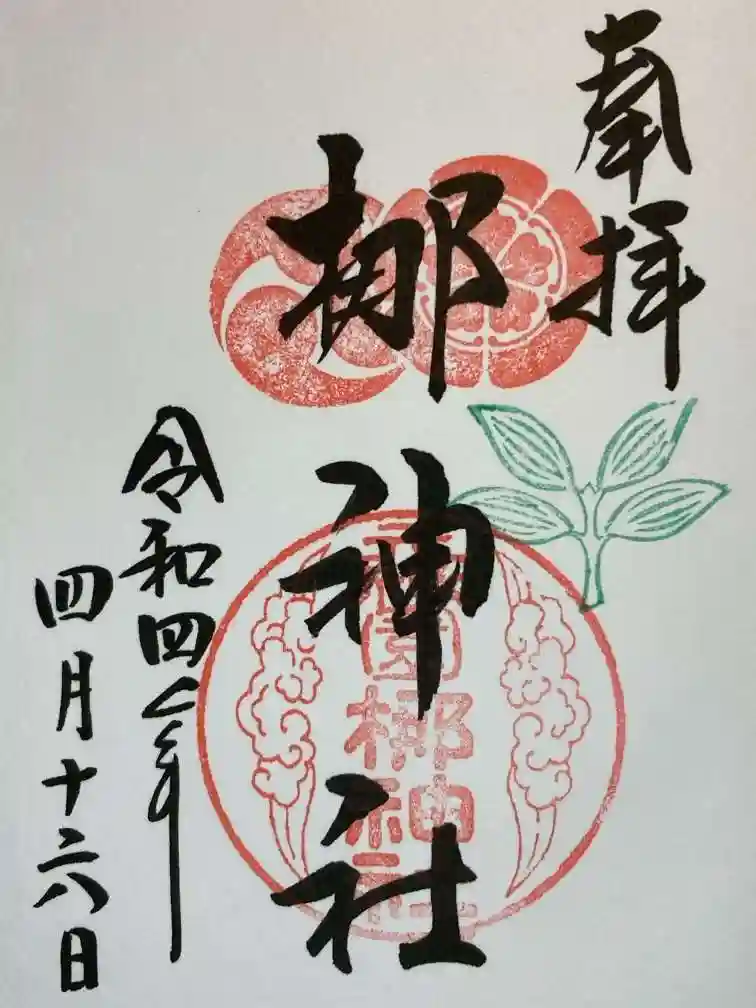 奉拝
梛神社
令和四年
四月十六日
園梛神社